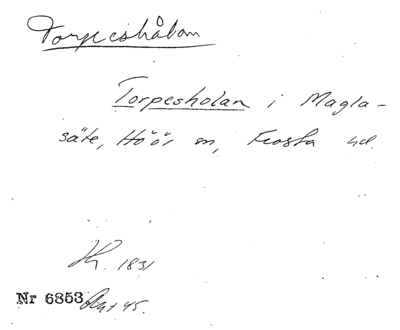 Torpeshålan
Torpesholan i Magla-
säte, Höör sn, Frosta hd.
1831
Nr 6853 45.